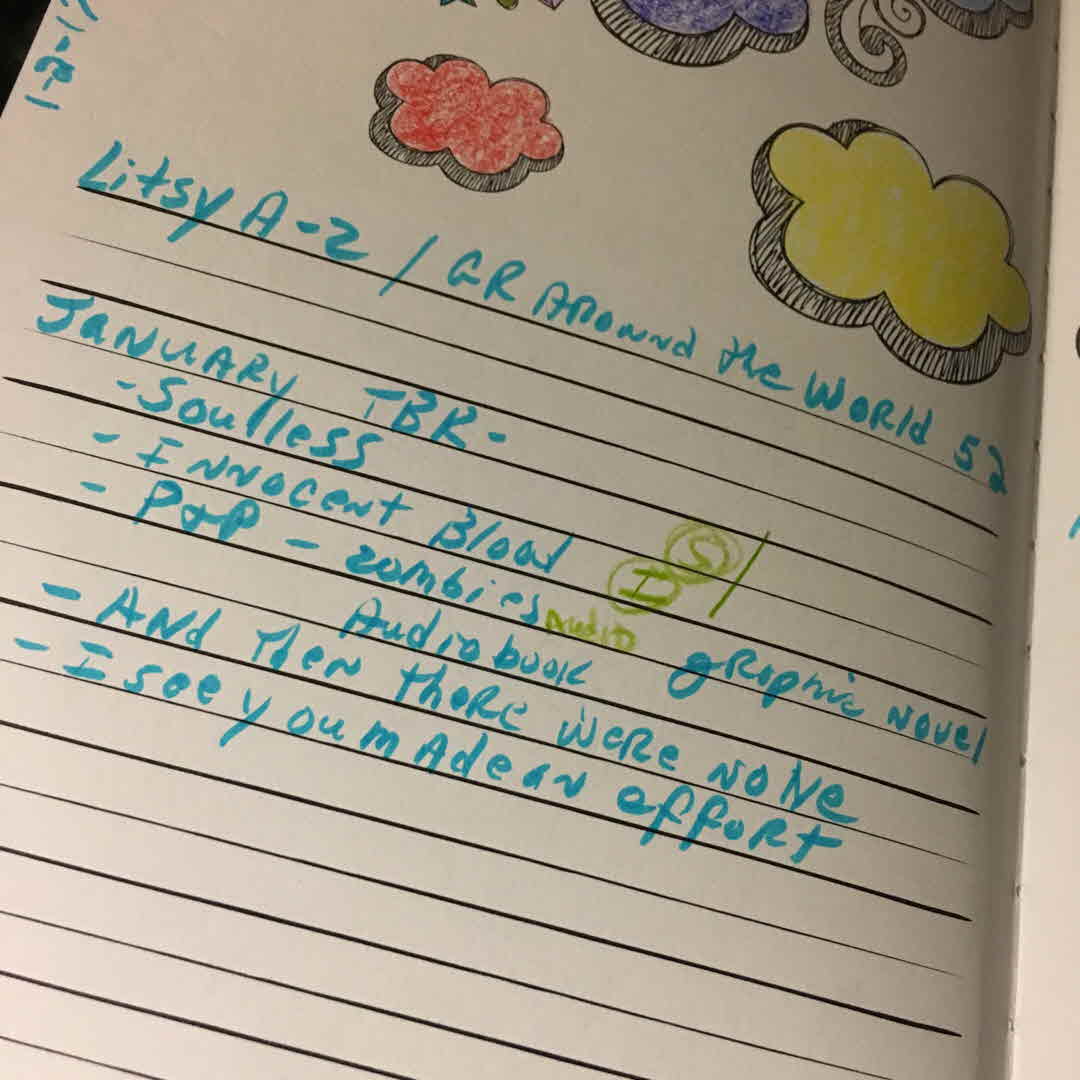 Litsy A-Z / GR Around the World 52
January TBR-
- Soulless
- Innocent Blood I S /
- P&P - zombies Audio
Audiobook graphic novel
- And Then there were None
- I see you made an effort